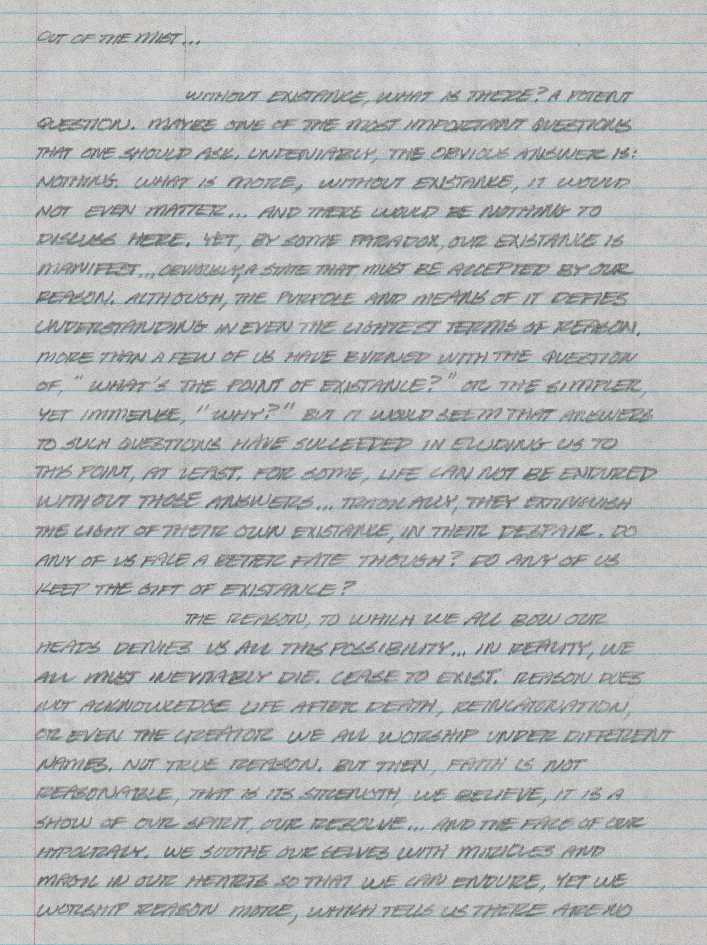 OUT OF THE MIST...
WITHOUT EXISTANCE, WHAT IS THERE? A POTENT
QUESTION. MAYBE ONE OF THE MOST IMPORTANT QUESTIONS
THAT ONE SHOULD ASK. UNDENIABLY, THE OBVIOUS ANSWER IS:
NOTHING. WHAT IS MORE, WITHOUT EXISTANCE, IT WOULD
NOT EVEN MATTER... AND THERE WOULD BE NOTHING TO
DISCUSS HERE. YET, BY SOME PARADOX, OUR EXISTANCE IS
MANIFEST... OBVIOUSLY, A STATE THAT MUST BE ACCEPTED BY OUR
REASON. ALTHOUGH, THE PURPOSE AND MEANS OF IT DEFIES
UNDERSTANDING IN EVEN THE LIGHTEST TERMS OF REASON.
MORE THAN A FEW OF US HAVE BURNED WITH THE QUESTION
OF, "WHAT'S THE POINT OF EXISTANCE?" OR THE SIMPLER,
YET IMMENSE, "WHY?" BUT IT WOULD SEEM THAT ANSWERS
TO SUCH QUESTIONS HAVE SUCCEEDED IN ELUDING US TO
THIS POINT, AT LEAST. FOR SOME, LIFE CAN NOT BE ENDURED
WITHOUT THOSE ANSWERS... TRAGICALLY, THEY EXTINGUISH
THE LIGHT OF THEIR OWN EXISTANCE, IN THEIR DESPAIR. DO
ANY OF US FACE A BETER FATE THOUGH? DO ANY OF US
KEEP THE GIFT OF EXISTANCE?
THE REASON, TO WHICH WE ALL BOW OUR
HEADS DENIES US ALL THIS POSSIBILITY... IN REALITY, WE
ALL MUST INEVITABLY DIE. CEASE TO EXIST. REASON DOES
NOT ACKNOWLEDGE LIFE AFTER DEATH, REINCARNATION,
OR EVEN THE CREATOR WE ALL WORSHIP UNDER DIFFERENT
NAMES. NOT TRUE REASON. BUT THEN, FAITH IS NOT
REASONABLE, THAT IS ITS STRENGTH, WE BELIEVE, IT IS A
SHOW OF OUR SPIRIT, OUR RESOLVE... AND THE FACE OF OUR
HYPOCRACY. WE SOOTHE OUR SELVES WITH MIRICLES AND
MAGIC IN OUR HEARTS SO THAT WE CAN ENDURE, YET WE
WORSHIP REASON MORE, WHICH TELLS US THERE ARE NO